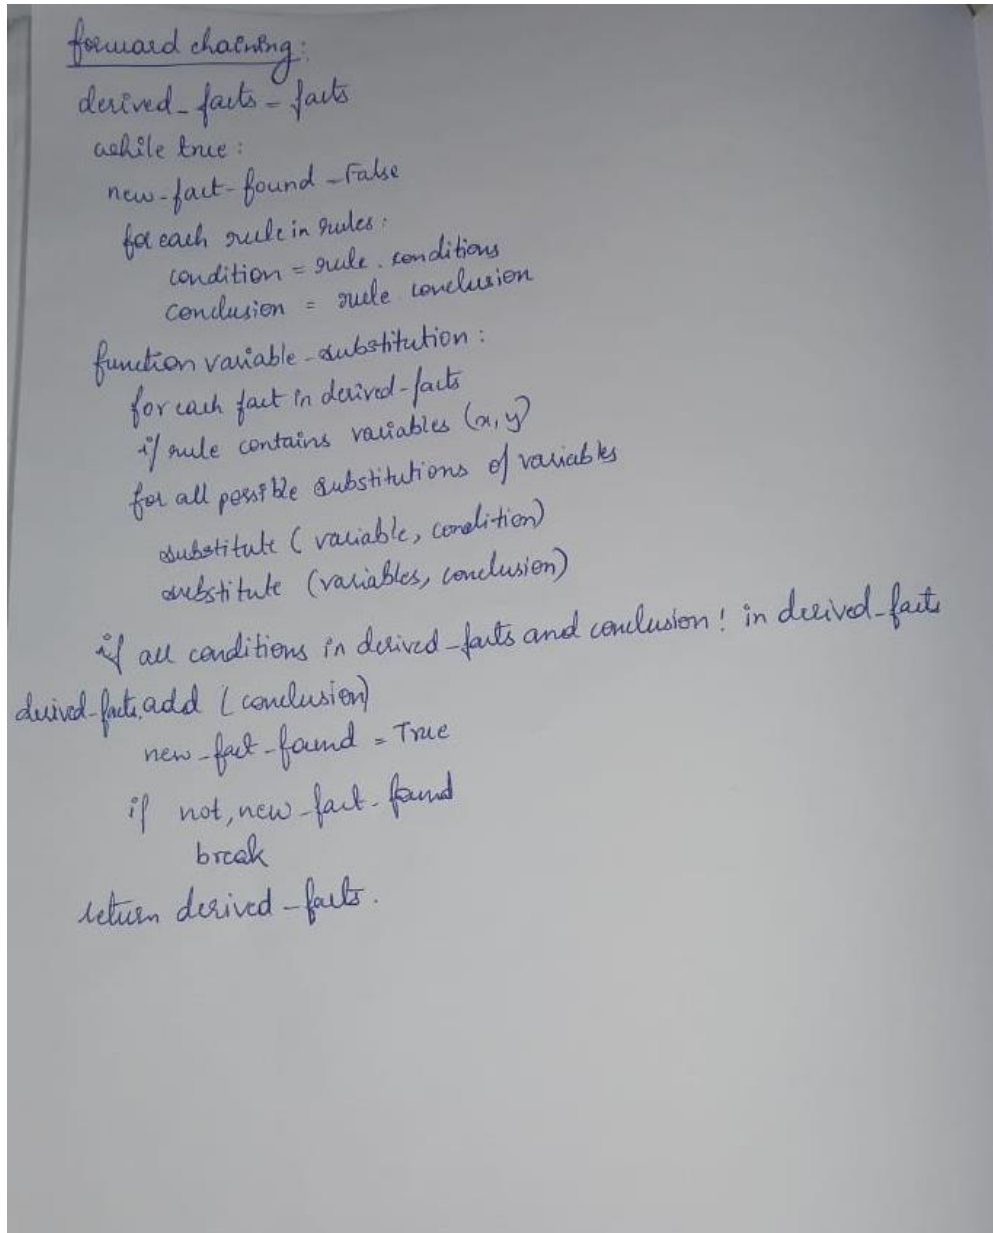 forward chaining:
derived_facts = facts
while true:
new-fact-found = False
for each rule in rules:
condition = rule. conditions
conclusion = rule conclusion
function variable-substitution:
for each fact in derived-facts
if rule contains variables (x, y)
for all possible substitutions of variables
substitute (variable, condition)
substitute (variables, conclusion)
if all conditions in derived_facts and conclusion! in derived_facts
derived_facts.add (conclusion)
new-fact-found = True
if not, new-fact-found
break
return derived-facts.